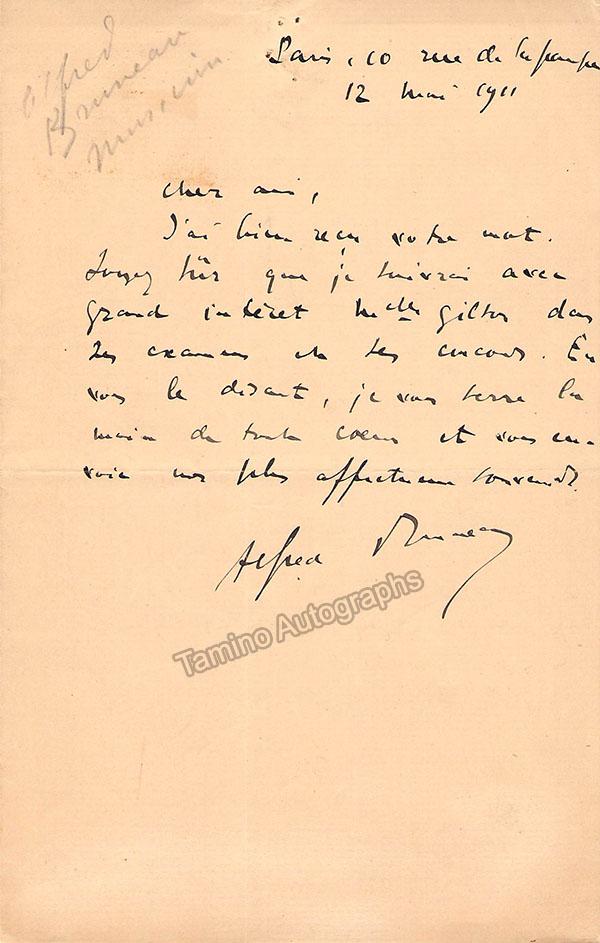 Alfred
Bruneau
musicien
Paris, 10 rue de la pompe
12 mai 1911
cher ami,
J'ai bien reçu votre mot.
Soyez sûr que je suivrai avec
grand intérêt Melle dans
ses examens et ses concours. En
vous le disant, je vous serre la
main de tout coeur et vous en-
voie nos plus affectueux souvenirs.
Alfred Bruneau
Tamino Autographs